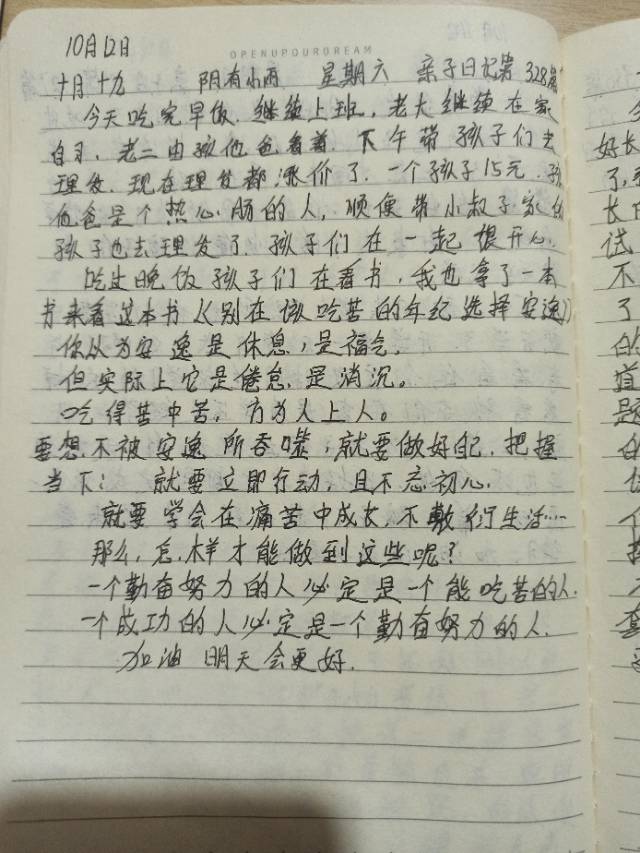 10月12日
OPENUPOURDREAM
十月十九 阴有小雨 星期六 亲子日记第328篇
今天吃完早饭,继续上班,老大继续在家
自习,老二由孩他爸看着,下午带孩子们去
理发,现在理发都涨价了,一个孩子15元,孩
他爸是个热心肠的人,顺便带小叔子家的
孩子也去理发了,孩子们在一起很开心。
吃过晚饭孩子们在看书,我也拿了一本
书来看这本书《别在该吃苦的年纪选择安逸》
你以为安逸是休息,是福气,
但实际上它是倦怠,是消沉。
吃得苦中苦,方为人上人。
要想不被安逸所吞噬,就要做好自己,把握
当下; 就要立即行动,且不忘初心,
就要学会在痛苦中成长,不敷衍生活…
那么,怎样才能做到这些呢?
一个勤奋努力的人必定是一个能吃苦的人.
一个成功的人必定是一个勤奋努力的人.
加油 明天会更好.
好长
了,
长
试
不
了
的
道
题
的